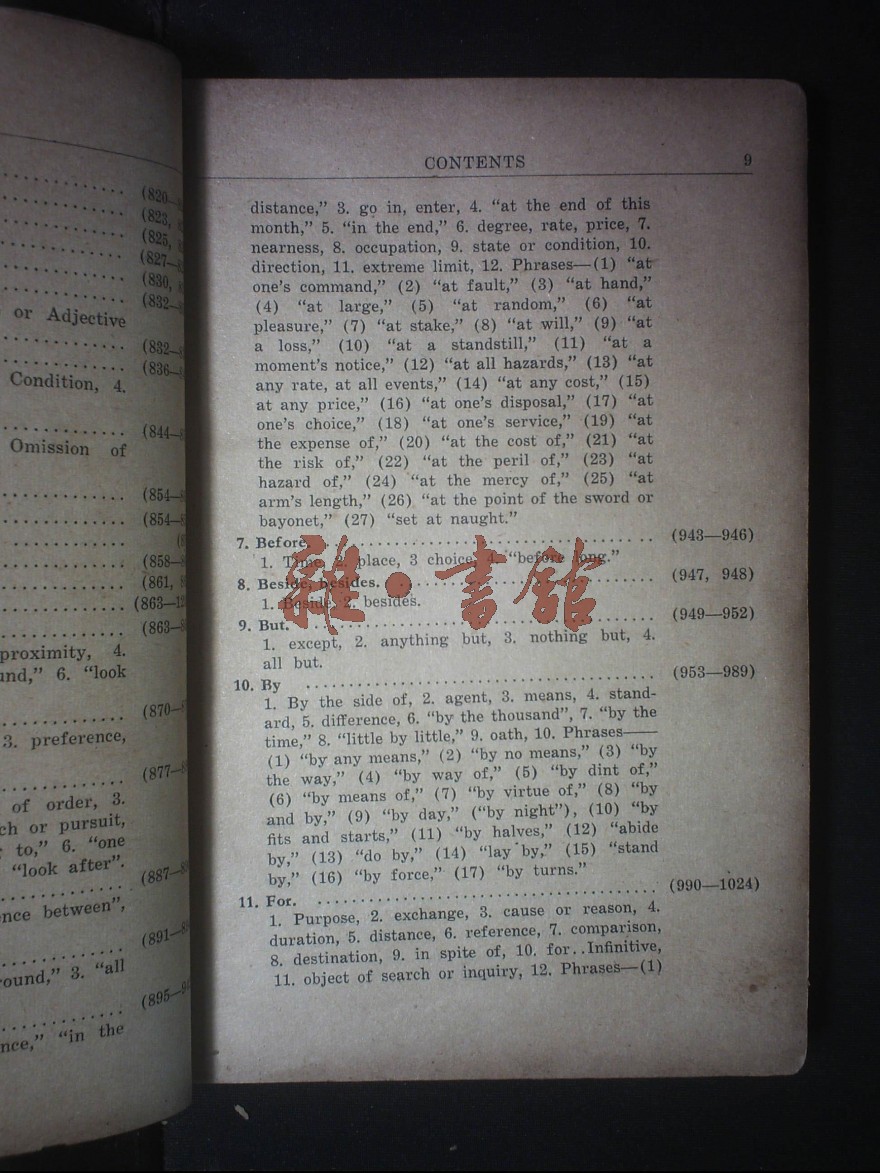 (820—
(823,
(825,
(827—
(830,
(832—
or Adjective
(832—
(836—
Condition, 4.
(844—
Omission of
(854—
(854—
(858—
(861,
(863—
(863—
proximity, 4.
6. “look
(870—
3. preference,
(877—
of order, 3.
or pursuit,
to,” 6. “one
“look after”.
(887—
between”,
(891—
3. “all
(895—
“in the
CONTENTS 9
distance,” 3. go in, enter, 4. “at the end of this
month,” 5. “in the end,” 6. degree, rate, price, 7.
nearness, 8. occupation, 9. state or condition, 10.
direction, 11. extreme limit, 12. Phrases—(1) “at
one’s command,” (2) “at fault,” (3) “at hand,”
(4) “at large,” (5) “at random,” (6) “at
pleasure,” (7) “at stake,” (8) “at will,” (9) “at
a loss,” (10) “at a standstill,” (11) “at a
moment’s notice,” (12) “at all hazards,” (13) “at
any rate, at all events,” (14) “at any cost,” (15)
at any price,” (16) “at one’s disposal,” (17) “at
one’s choice,” (18) “at one’s service,” (19) “at
the expense of,” (20) “at the cost of,” (21) “at
the risk of,” (22) “at the peril of,” (23) “at
hazard of,” (24) “at the mercy of,” (25) “at
arm’s length,” (26) “at the point of the sword or
bayonet,” (27) “set at naught.”
7. Before, .................................... (943—946)
1. Time, 2. place, 3 choice, 4. “before long.”
8. Beside, besides. .................................... (947, 948)
1. Beside, 2. besides.
9. But. .................................... (949—952)
1. except, 2. anything but, 3. nothing but, 4.
all but.
10. By .................................... (953—989)
1. By the side of, 2. agent, 3. means, 4. stand-
ard, 5. difference, 6. “by the thousand”, 7. “by the
time,” 8. “little by little,” 9. oath, 10. Phrases——
(1) “by any means,” (2) “by no means,” (3) “by
the way,” (4) “by way of,” (5) “by dint of,”
(6) “by means of,” (7) “by virtue of,” (8) “by
and by,” (9) “by day,” (“by night”), (10) “by
fits and starts,” (11) “by halves,” (12) “abide
by,” (13) “do by,” (14) “lay by,” (15) “stand
by,” (16) “by force,” (17) “by turns.”
11. For. .................................... (990—1024)
1. Purpose, 2. exchange, 3. cause or reason, 4.
duration, 5. distance, 6. reference, 7. comparison,
8. destination, 9. in spite of, 10. for..Infinitive,
11. object of search or inquiry, 12. Phrases—(1)
雜•書館